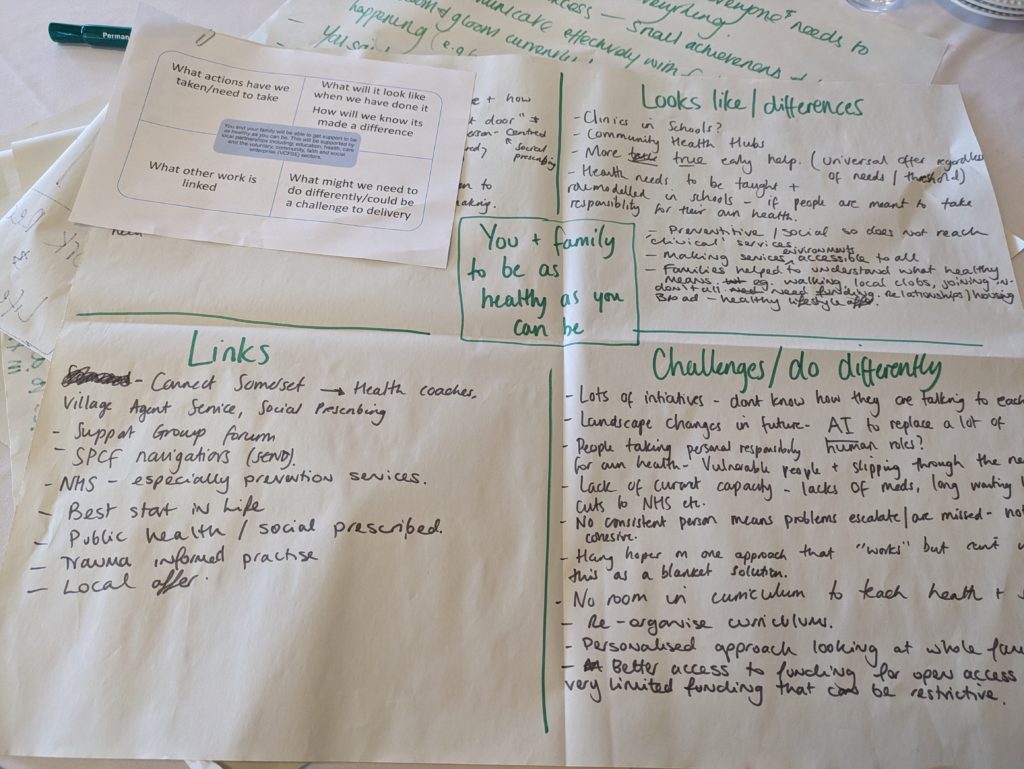 Perman
everyone's
everything.
needs to
process - small achievements
communicate effectively with
doom & gloom currently
happening (e.g.
- You said
11
What actions have we
taken/need to take
What will it look like
when we have done it
How will we know its
made a difference
You and your family will be able to get support to be
as healthy as you can be. This will be supported by
local partnerships including: education, health, care
and the voluntary, community, faith and social
enterprise (VCFSE) sectors.
What other work is
linked
What might we need to
do differently/could be
a challenge to delivery
e + how
t door" *
erson - Centred
red) social
prescribing
m to
making.
Looks like / differences
- Clinics in Schools?
- Community Health Hubs
- More true early help. (Universal offer regardless
of needs / threshold)
- Health needs to be taught +
rolemodelled in schools - if people are meant to take
responsiblity for their own health.
- Preventitive / social so does not reach
'clinical' services
- making services, environments accessible to all
- Families helped to understand what healthy
means. eg. walking, local clubs, joining in.
don't all need funding. Relationships / housing
Broad - healthy lifestyle offer.
You + family
to be as
healthy as you
can be
Links
- Connect Somerset → Health coaches,
Village Agent Service, Social Prescribing
- Support Group Forum
- SPCF navigators (SEND).
- NHS - especially prevention services.
- Best start in Life
- Public health / social prescribed.
- Trauma informed practise
- Local offer.
Challenges / do differently
- Lots of intiatives - dont know how they are talking to each
- Landscape changes in future - AI to replace a lot of
human roles?
- People taking personal responsiblity
for own health - Vulnerable people + slipping through the ne
- Lack of curant capacity - lacks of meds, long waiting
cuts to NHS etc.
- No consistent person means problems escalate / are missed - not
cohesive.
- Hang hopes on one approach that "works" but cant
this as a blanket solution.
- No room in curriculum to teach health +
- Re-organise curriculum.
- Personalised approach looking at whole fam
- Better access to funding for open access
very limited funding that can be restrictive.